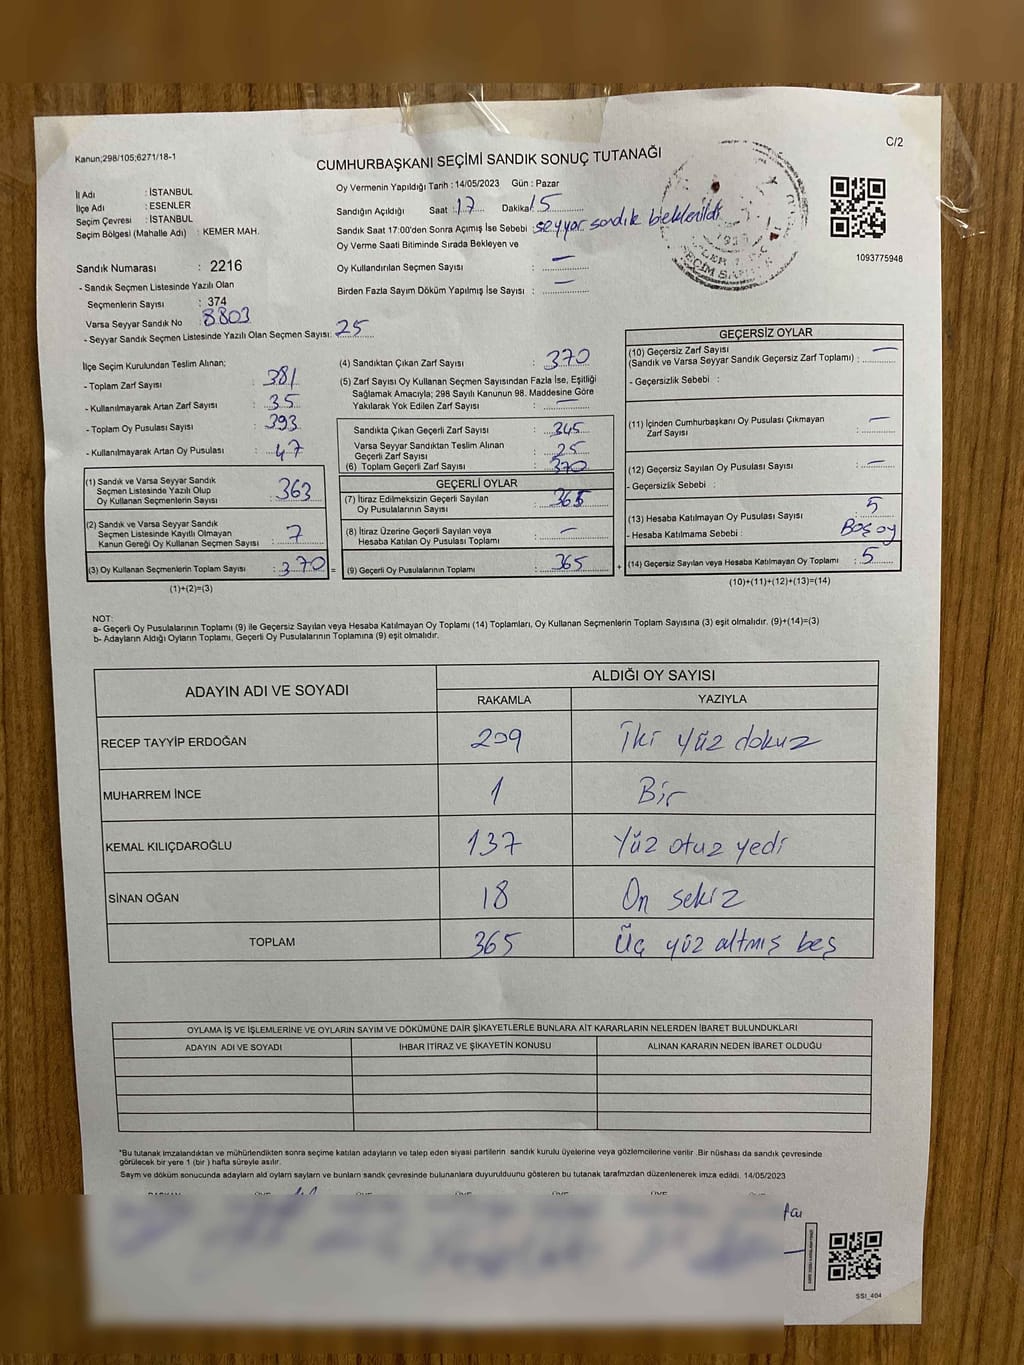 Kanun;298/105;6271/18-1
C/2
CUMHURBAŞKANI SEÇİMİ SANDIK SONUÇ TUTANAĞI
İl Adı : İSTANBUL
İlçe Adı : ESENLER
Seçim Çevresi : İSTANBUL
Seçim Bölgesi (Mahalle Adı) : KEMER MAH.
Oy Vermenin Yapıldığı Tarih : 14/05/2023 Gün : Pazar
Sandığın Açıldığı Saat 17 Dakika 15
Sandık Saat 17:00'den Sonra Açımış İse Sebebi : seyyar sandık beklenildi
Oy Verme Saati Bitiminde Sırada Bekleyen ve
Oy Kullandırılan Seçmen Sayısı : —
Birden Fazla Sayım Döküm Yapılmış İse Sayısı : —
1093775948
Sandık Numarası : 2216
- Sandık Seçmen Listesinde Yazılı Olan
Seçmenlerin Sayısı : 374
Varsa Seyyar Sandık No 8803
- Seyyar Sandık Seçmen Listesinde Yazılı Olan Seçmen Sayısı: 25
İlçe Seçim Kurulundan Teslim Alınan;
- Toplam Zarf Sayısı : 381
- Kullanılmayarak Artan Zarf Sayısı : 35
- Toplam Oy Pusulası Sayısı : 393
- Kullanılmayarak Artan Oy Pusulası : 47
(1) Sandık ve Varsa Seyyar Sandık
Seçmen Listesinde Yazılı Olup
Oy Kullanan Seçmenlerin Sayısı : 363
(2) Sandık ve Varsa Seyyar Sandık
Seçmen Listesinde Kayıtlı Olmayan
Kanun Gereği Oy Kullanan Seçmen Sayısı : 7
(3) Oy Kullanan Seçmenlerin Toplam Sayısı : 370 =
(1)+(2)=(3)
(4) Sandıktan Çıkan Zarf Sayısı : 370
(5) Zarf Sayısı Oy Kullanan Seçmen Sayısından Fazla İse, Eşitliği
Sağlamak Amacıyla; 298 Sayılı Kanunun 98. Maddesine Göre
Yakılarak Yok Edilen Zarf Sayısı : —
Sandıkta Çıkan Geçerli Zarf Sayısı : 345
Varsa Seyyar Sandıktan Teslim Alınan
Geçerli Zarf Sayısı : 25
(6) Toplam Geçerli Zarf Sayısı : 370
GEÇERLİ OYLAR
(7) İtiraz Edilmeksizin Geçerli Sayılan
Oy Pusulalarının Sayısı : 365
(8) İtiraz Üzerine Geçerli Sayılan veya
Hesaba Katılan Oy Pusulası Toplamı : —
(9) Geçerli Oy Pusulalarının Toplamı : 365 +
GEÇERSİZ OYLAR
(10) Geçersiz Zarf Sayısı
(Sandık ve Varsa Seyyar Sandık Geçersiz Zarf Toplamı) : —
- Geçersizlik Sebebi :
(11) İçinden Cumhurbaşkanı Oy Pusulası Çıkmayan
Zarf Sayısı : —
(12) Geçersiz Sayılan Oy Pusulası Sayısı : —
- Geçersizlik Sebebi :
(13) Hesaba Katılmayan Oy Pusulası Sayısı : 5
- Hesaba Katılmama Sebebi : Boş oy
(14) Geçersiz Sayılan veya Hesaba Katılmayan Oy Toplamı : 5
(10)+(11)+(12)+(13)=(14)
NOT:
a- Geçerli Oy Pusulalarının Toplamı (9) ile Geçersiz Sayılan veya Hesaba Katılmayan Oy Toplamı (14) Toplamları, Oy Kullanan Seçmenlerin Toplam Sayısına (3) eşit olmalıdır. (9)+(14)=(3)
b- Adayların Aldığı Oyların Toplamı, Geçerli Oy Pusulalarının Toplamına (9) eşit olmalıdır.
ADAYIN ADI VE SOYADI ALDIĞI OY SAYISI
RAKAMLA YAZIYLA
RECEP TAYYİP ERDOĞAN 209 İki yüz dokuz
MUHARREM İNCE 1 Bir
KEMAL KILIÇDAROĞLU 137 Yüz otuz yedi
SİNAN OĞAN 18 On sekiz
TOPLAM 365 Üç yüz altmış beş
OYLAMA İŞ VE İŞLEMLERİNE VE OYLARIN SAYIM VE DÖKÜMÜNE DAİR ŞİKAYETLERLE BUNLARA AİT KARARLARIN NELERDEN İBARET BULUNDUKLARI
ADAYIN ADI VE SOYADI İHBAR İTİRAZ VE ŞİKAYETİN KONUSU ALINAN KARARIN NEDEN İBARET OLDUĞU
"Bu tutanak imzalandıktan ve mühürlendikten sonra seçime katılan adayların ve talep eden siyasi partilerin sandık kurulu üyelerine veya gözlemcilerine verilir .Bir nüshası da sandık çevresinde
görülecek bir yere 1 (bir ) hafta süreyle asılır.
Sayım ve döküm sonucunda adayların ald oyların sayıların ve bunların sandk çevresinde bulunanlara duyurulduunu gösteren bu tutanak tarafmzdan düzenlenerek imza edildi. 14/05/2023
SSI_404